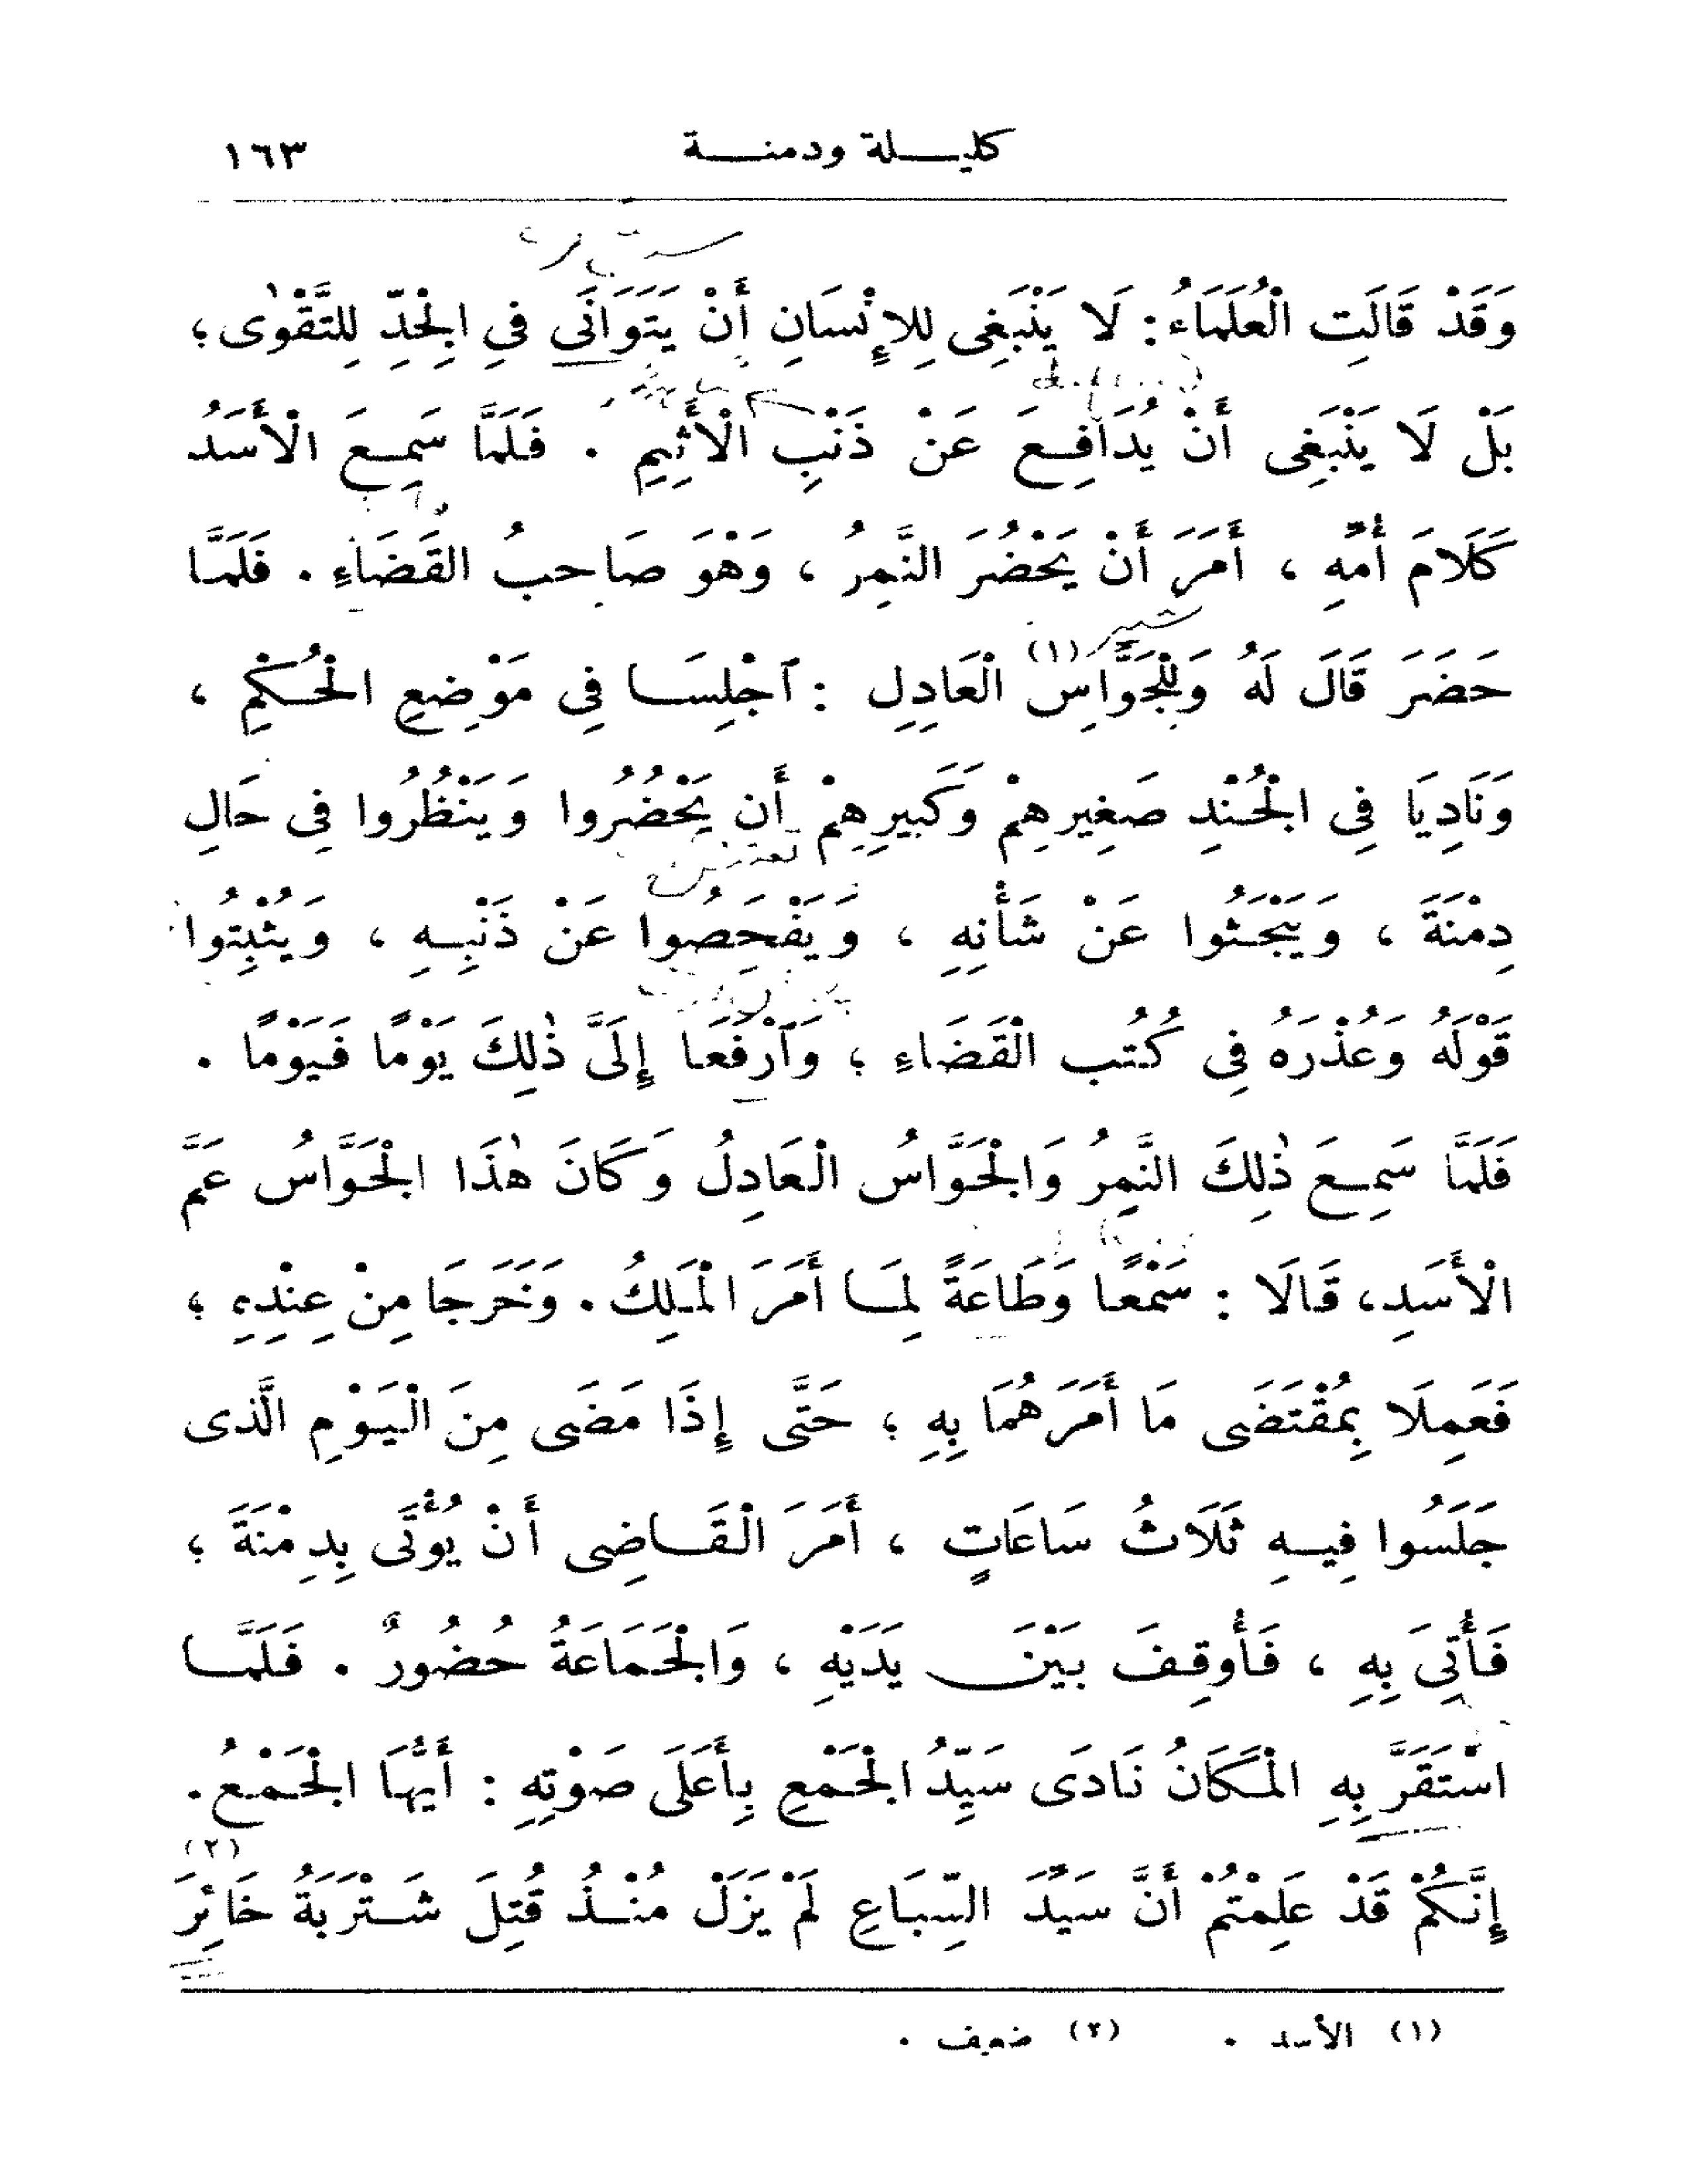 كليلة ودمنة ١٦٣
وَقَدْ قَالَتِ الْعُلَمَاءُ: لَا يَنْبَغِى لِلإِنْسَانِ أَنْ يَتَوَانَى فِي الْجِدِّ لِلتَّقْوٰى؛
بَلْ لَا يَنْبَغِى أَنْ يُدَافِعَ عَنْ ذَنْبِ الْأَثِيمِ . فَلَمَّا سَمِعَ الْأَسَدُ
كَلَامَ أُمِّهِ ، أَمَرَ أَنْ يَحْضُرَ النَّمِرُ ، وَهْوَ صَاحِبُ القَضَاءِ . فَلَمَّا
حَضَرَ قَالَ لَهُ وَلِلْجَوَّاسِ (١) الْعَادِلِ : ٱجْلِسَا فِى مَوْضِعِ الْحُكْمِ ،
وَنَادِيَا فِى الْجُنْدِ صَغِيرِهِمْ وَكَبِيرِهِمْ أَن يَحْضُرُوا وَيَنْظُرُوا فِى حَالِ
دِمْنَةَ ، وَيَبْحَثُوا عَنْ شَأْنِهِ ، وَيَفْحَصُوا عَنْ ذَنْبِهِ ، وَيُثْبِتُوا
قَوْلَهُ وَعُذْرَهُ فِى كُتُب الْقَضَاءِ ؛ وَٱرْفَعَا إِلَىَّ ذٰلِكَ يَوْمًا فَيَوْمًا .
فَلَمَّا سَمِعَ ذٰلِكَ النَّمِرُ وَالْجَوَّاسُ الْعَادِلُ وَكَانَ هٰذَا الْجَوَّاسُ عَمَّ
الْأَسَدِ، قَالَا : سَمْعًا وَطَاعَةً لِمَا أَمَرَ الْمَلِكُ . وَخَرَجَا مِنْ عِنْدِهِ ؛
فَعَمِلَا بِمُقْتَضَى مَا أَمَرَهُمَا بِهِ ؛ حَتَّى إِذَا مَضَى مِنَ الْيَوْمِ الَّذى
جَلَسُوا فِيهِ ثَلَاثُ سَاعَاتٍ ، أَمَرَ الْقَاضِى أَنْ يُؤْتَى بِدِمْنَةَ ؛
فَأُتِىَ بِهِ ، فَأُوقِفَ بَيْنَ يَدَيْهِ ، وَالْجَمَاعَةُ حُضُورٌ . فَلَمَّا
اسْتَقَرَّ بِهِ الْمَكَانُ نَادَى سَيِّدُ الْجَمْعِ بِأَعْلَى صَوْتِهِ : أَيُّهَا الْجَمْعُ.
إِنَّكُمْ قَدْ عَلِمْتُمْ أَنَّ سَيِّدَ السِّبَاعِ لَمْ يَزَلْ مُنْذُ قُتِلَ شَتْرَبَةُ خَائِرَ (٢)
(١) الأسد . (٢) ضعيف .